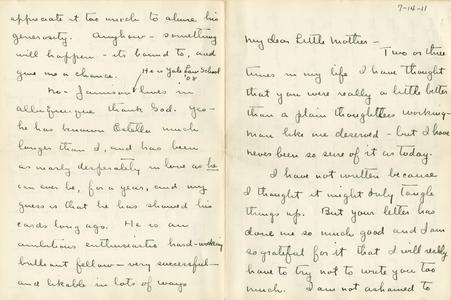 appreciate it too much to abuse his
generosity. Anyhow - something
will happen - its bound to, and
give me a chance. He is Yale Law School
'08
No - Jamison lives in
Albuquerque thank God. Yes -
he has known Estella much
longer than I, and has been
as nearly desperately in love as he
can ever be, for a year, and my
guess is that he has showed his
cards long ago. He is an
ambitious enthusiastic hard-working
brilliant fellow - very successful -
and likable in lots of ways
7-14-11
My dear Little Mother -
Two or three
times in my life I have thought
that you were really a little better
than a plain thoughtless working-
man like me deserved - but I have
never been so sure of it as today.
I have not written because
I thought it might only tangle
things up. But your letter has
done me so much good and I am
so grateful for it that I will really
have to try not to write you too
much. I am not ashamed to